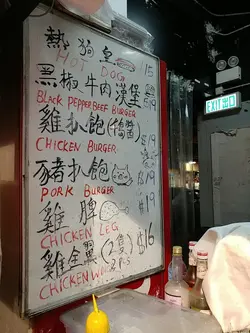 熱狗皇 15
HOT DOG
黑椒牛肉漢堡 $19
BLACK PEPPER BEEF BURGER
雞扒飽(鴿醬) $19
CHICKEN BURGER
豬扒飽 $19
PORK BURGER
雞脾 $19
CHICKEN LEG
雞全翼(2隻) $16
CHICKEN WING 2PCS
EXIT 出